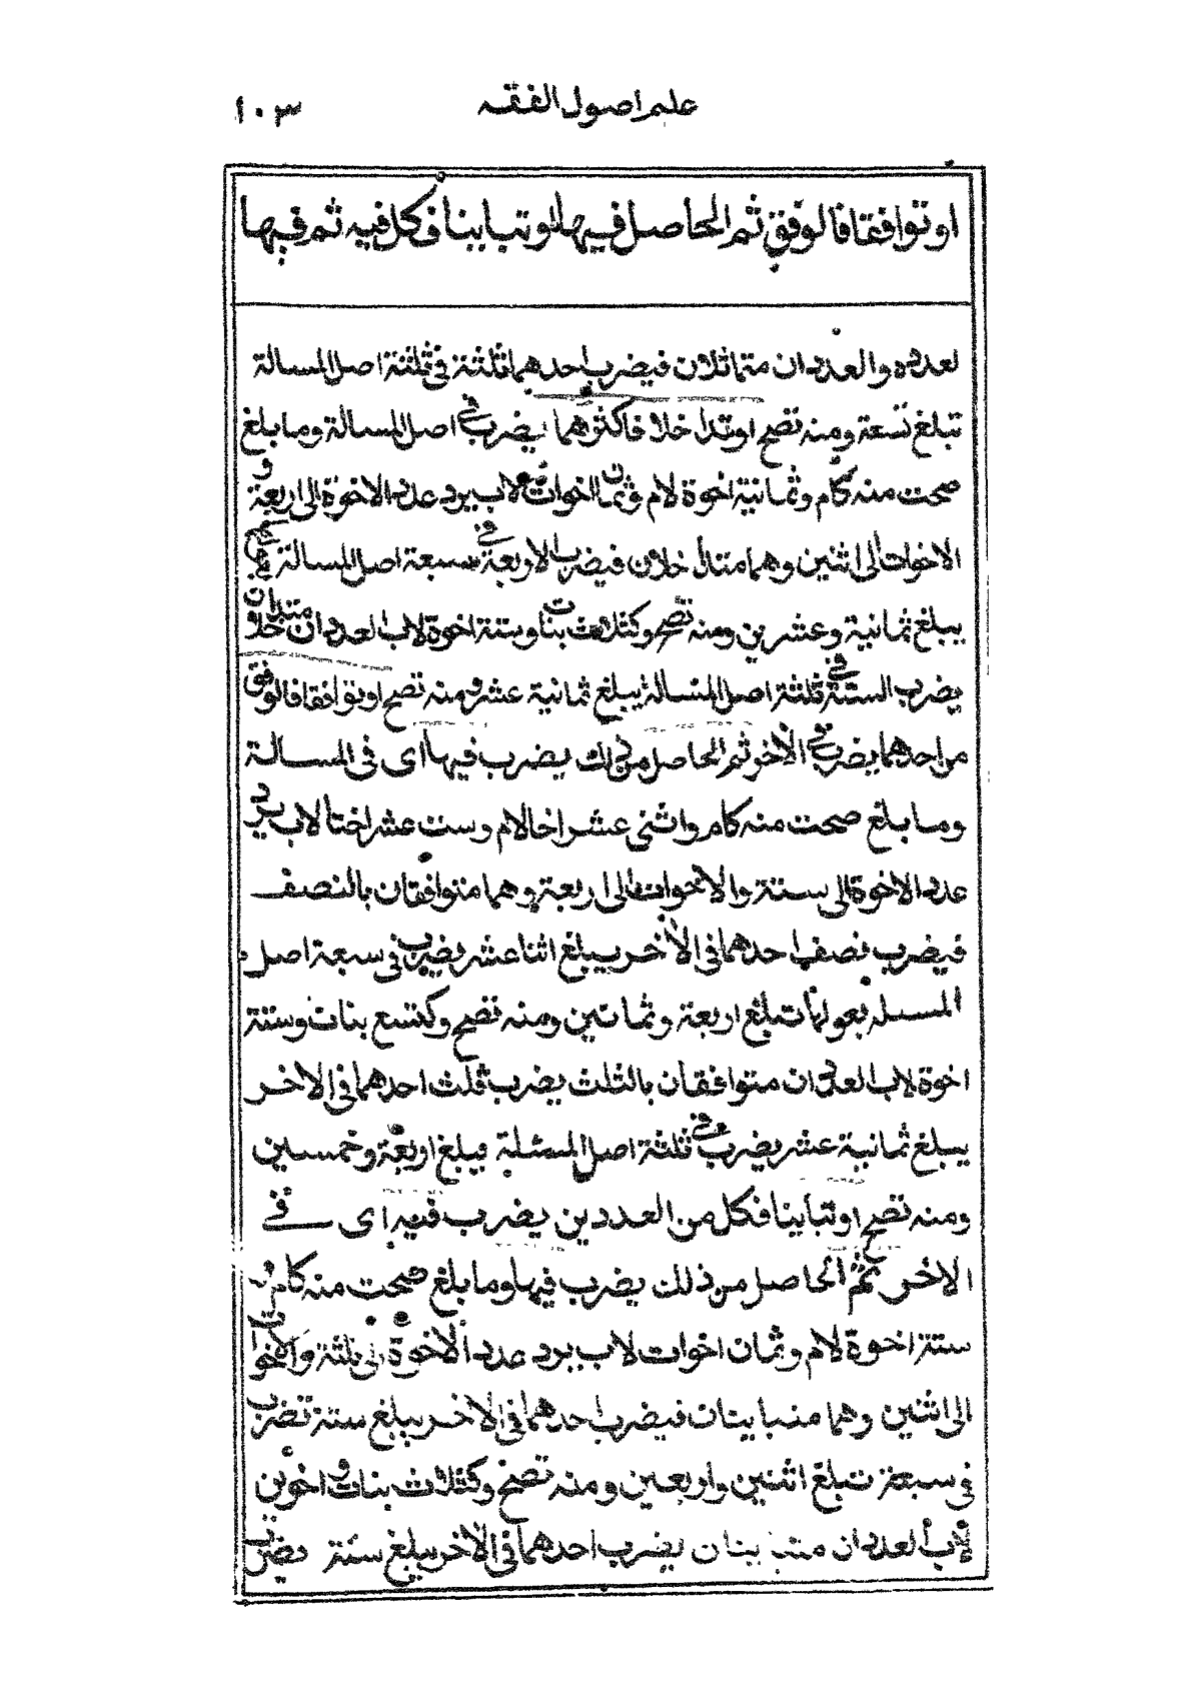 علم اصول الفقه
١٠٣
او توافقا فالوفق ثم الحاصل فيها او تباينا فكل فيه ثم فيها
لعدده والعددان متماثلان فيضرب احدهما ثلثة في ثلثة اصل المسالة
تبلغ تسعة ومنه تصح او تداخلا فاكثرهما يضرب في اصل المسالة وما بلغ
صحت منه كام وثمانية اخوة لام وثمان اخوات لاب يرد عدد الاخوة الى اربعة و
الاخوات الى اثنين وهما متداخلان فيضرب الاربعة في سبعة اصل المسالة
يبلغ ثمانية وعشرين ومنه تصح وكثلاث بنات وستة اخوة لاب العددان متداخلان
يضرب الستة في ثلثة اصل المسالة يبلغ ثمانية عشر ومنه تصح او توافقا فالوفق
من احدهما يضرب في الاخر ثم الحاصل من ذلك يضرب فيها اى فى المسالة
وما بلغ صحت منه كام واثنى عشر اخا لام وست عشر اختا لاب يرد
عدد الاخوة الى ستة والاخوات الى اربعة وهما متوافقان بالنصف
فيضرب نصف احدهما فى الاخر يبلغ اثنا عشر يضرب في سبعة اصل
المسئله بعولها تبلغ اربعة وثمانين ومنه تصح وكتسع بنات وستة
اخوة لاب العددان متوافقان بالثلث يضرب ثلث احدهما فى الاخر
يبلغ ثمانية عشر يضرب في ثلثة اصل المسئلة يبلغ اربعة وخمسين
ومنه تصح او تباينا فكل من العددين يضرب فيه اى في
الاخر ثم الحاصل من ذلك يضرب فيها وما بلغ صحت منه كام و
ستة اخوة لام وثمان اخوات لاب يرد عدد الاخوة الى ثلثة والاخوات
الى اثنين وهما متباينان فيضرب احدهما فى الاخر يبلغ ستة تضرب
في سبعة تبلغ اثنين واربعين ومنه تصح وكثلاث بنات واخوين
لاب العددان متباينان يضرب احدهما في الاخر يبلغ ستة يضرب